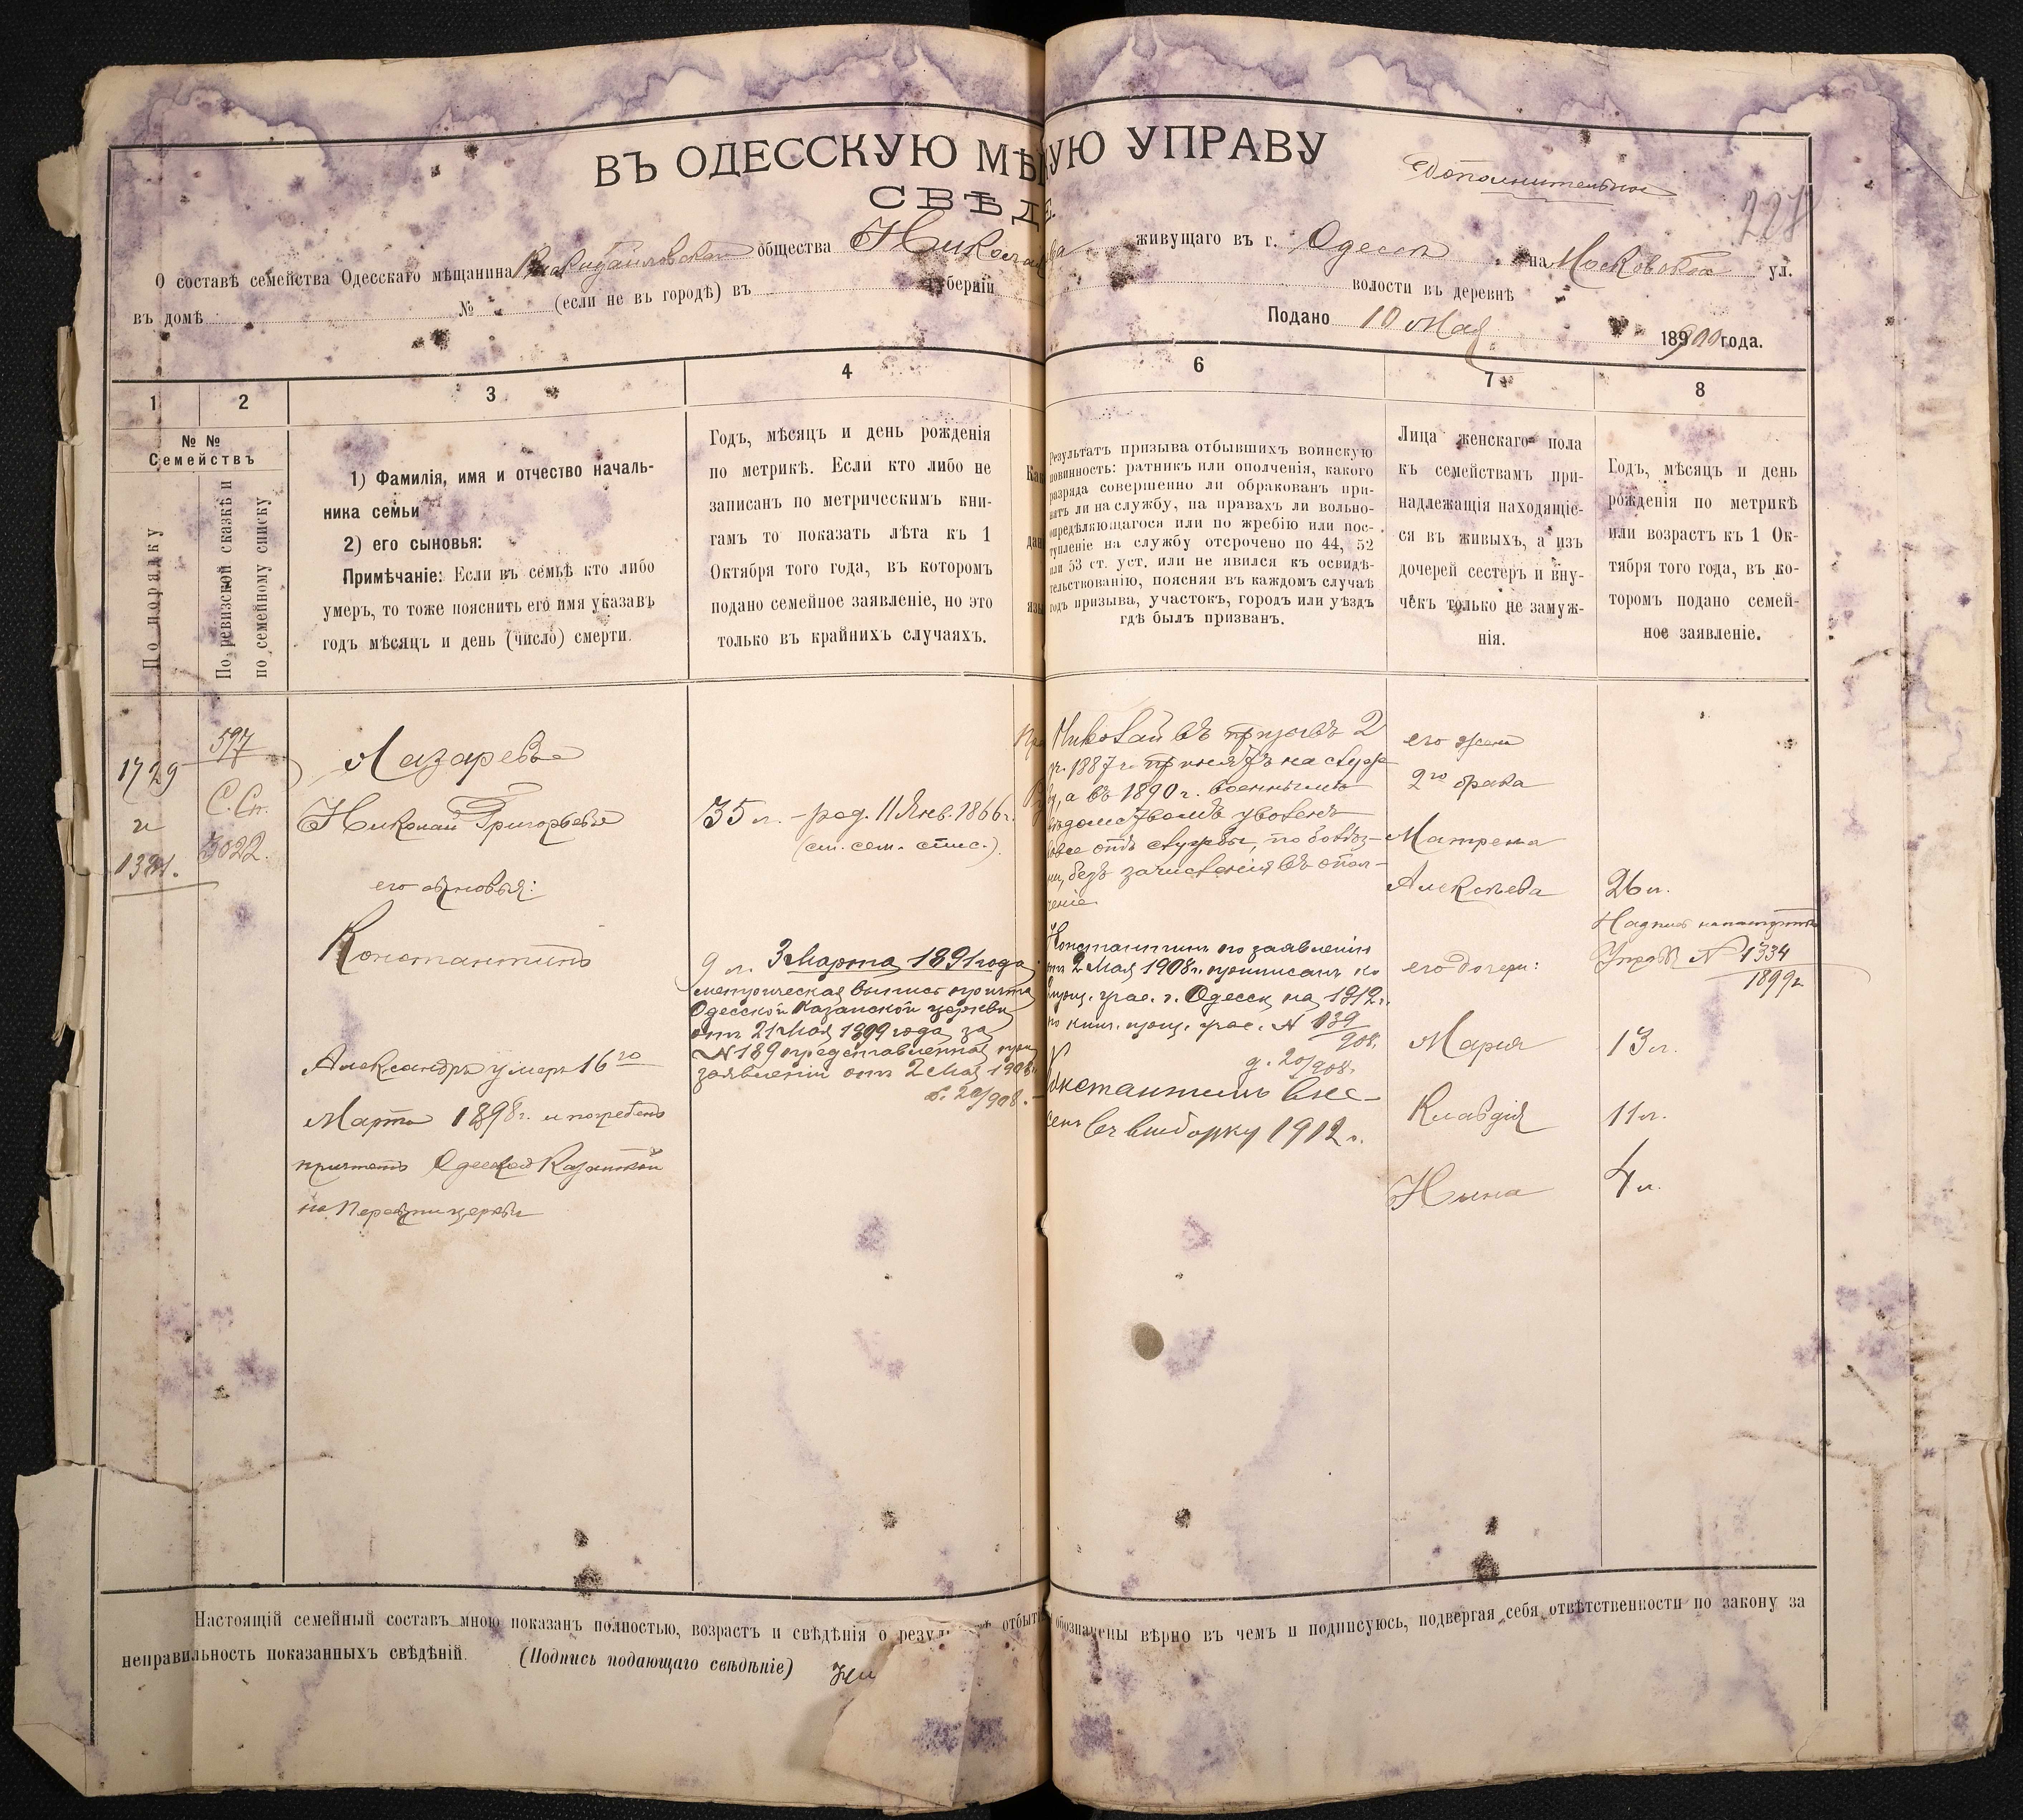 ВЪ ОДЕССКУЮ МѢ
КУЮ УПРАВУ
СВѢД
Дополнительное
227
О составѣ семейства Одесскаго мѣщанина общества Николая
живущаго въ г. Одессѣ на Московской ул.
въ домѣ № (если не въ городѣ) въ губерніи
волости въ деревнѣ
Подано 10 Мая 189 900 года.
1
2
3
4
6
7
8
№ №
Семействъ
По порядку
По ревизской сказкѣ и
по семейному списку
1) Фамилія, имя и отчество началь-
ника семьи
2) его сыновья:
Примѣчаніе: Если въ семьѣ кто либо
умеръ, то тоже пояснить его имя указавъ
годъ мѣсяцъ и день (число) смерти.
Годъ, мѣсяцъ и день рожденія
по метрикѣ. Если кто либо не
записанъ по метрическимъ кни-
гамъ то показать лѣта къ 1
Октября того года, въ которомъ
подано семейное заявленіе, но это
только въ крайнихъ случаяхъ.
Результатъ призыва отбывшихъ воинскую
повинность: ратникъ или ополченія, какого
разряда совершенно ли обракованъ при-
нятъ ли на службу, на правахъ ли вольно-
опредѣляющагося или по жребію или пос-
тупленіе на службу отсрочено по 44, 52
или 53 ст. уст. или не явился къ освидѣ-
тельствованію, поясняя въ каждомъ случаѣ
годъ призыва, участокъ, городъ или уѣздъ
гдѣ былъ призванъ.
Лица женскаго пола
къ семействамъ при-
надлежащія находящіе-
ся въ живыхъ, а изъ
дочерей сестеръ и вну-
чекъ только не замуж-
нія.
Годъ, мѣсяцъ и день
рожденія по метрикѣ
или возрастъ къ 1 Ок-
тября того года, въ ко-
торомъ подано семей-
ное заявленіе.
1729
и
597
С. Сп.
3022.
Лазаревъ
Николай Григорьевъ
его сыновья:
Константинъ
Александръ умеръ 16го
Марта 1898 г. и погребенъ
причтомъ Одесской Казанской
на Пересыпи церкви
35 л. – род. 11 Янв. 1866 г.
(см. сем. спис.)
9 л. 3 Марта 1891 года
метрическая выпись причта
Одесской Казанской церкви
отъ 21 Мая 1899 года за
№ 189 представленная при
заявленіи отъ 2 Мая 1908 г.
д. 20/908.
Николай въ призывъ 2
уч. 1887 г. принятъ на служ
бу, а въ 1890 г. военнымъ
вѣдомствомъ уволенъ
вовсе отъ службы, по болѣз-
ни, безъ зачисленія въ опол-
ченіе
Константинъ по заявленію
отъ 2 Мая 1908 г. приписанъ ко
приз. учас. г. Одессы на 1912 г.
по книг. приз. учас. № 139/908.
д. 20/908.
Константинъ вне-
сенъ въ выборку 1912 г.
его жена
2го брака
Матрена
Алексѣева
26 л.
Управы № 1334
1899 г.
его дочери:
Мария
13 л.
Клавдія
11 л.
Нина
4 л.
Настоящій семейный составъ мною показанъ полностью, возрастъ и свѣдѣнія о резул отбыті
обозначены вѣрно въ чемъ и подписуюсь, подвергая себя отвѣтственности по закону за
неправильность показанныхъ свѣдѣній. (Подпись подающаго свѣдѣніе) Ни